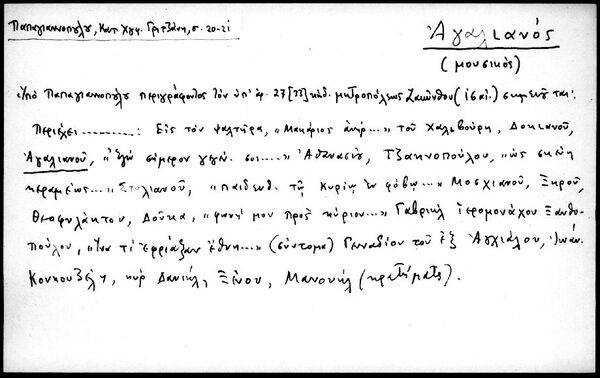 Παπαγιαννοπούλου, Κατ. Χγφ. Γριτζάνη, σ. 20-21
Ἀγαλιανός
(μουσικός)
Ὑπὸ Παπαγιαννοπούλου περιγράφοντος τὸν ὑπ' ἀρ. 27 [33] κώδ. μητροπόλεως Ζακύνθου (ἰδαί.) σημειοῦται:
Περιέχει ..........: Εἰς τὸν ψαλτῆρα, "Μακάριος ἀνήρ..." τοῦ Χαλιβούρη, Δοκιανοῦ,
Ἀγαλιανοῦ, "ἐγὼ σήμερον γεγέν. σοι..." Ἀθανασίου, Τζακνοπούλου, "ὡς σκεύη
κεραμέως..." Στυλιανοῦ, "παιδευθ. τῷ Κυρίῳ ἐν φόβῳ..." Μοσχιανοῦ, Ξηροῦ,
Θεοφυλάκτου, Δούκα, "φωνή μου πρὸς κύριον..." Γαβριὴλ ἱερομονάχου Ξανθο-
πούλου, "Ἵνα τί ἐφρύαξαν ἔθνη..." (σύντομα) Γενναδίου τοῦ ἐξ Ἀγχιάλου, Ἰωάν.
Κουκουζέλη, κὺρ Δανιήλ, Ξένου, Μανουήλ (κρατήματα).